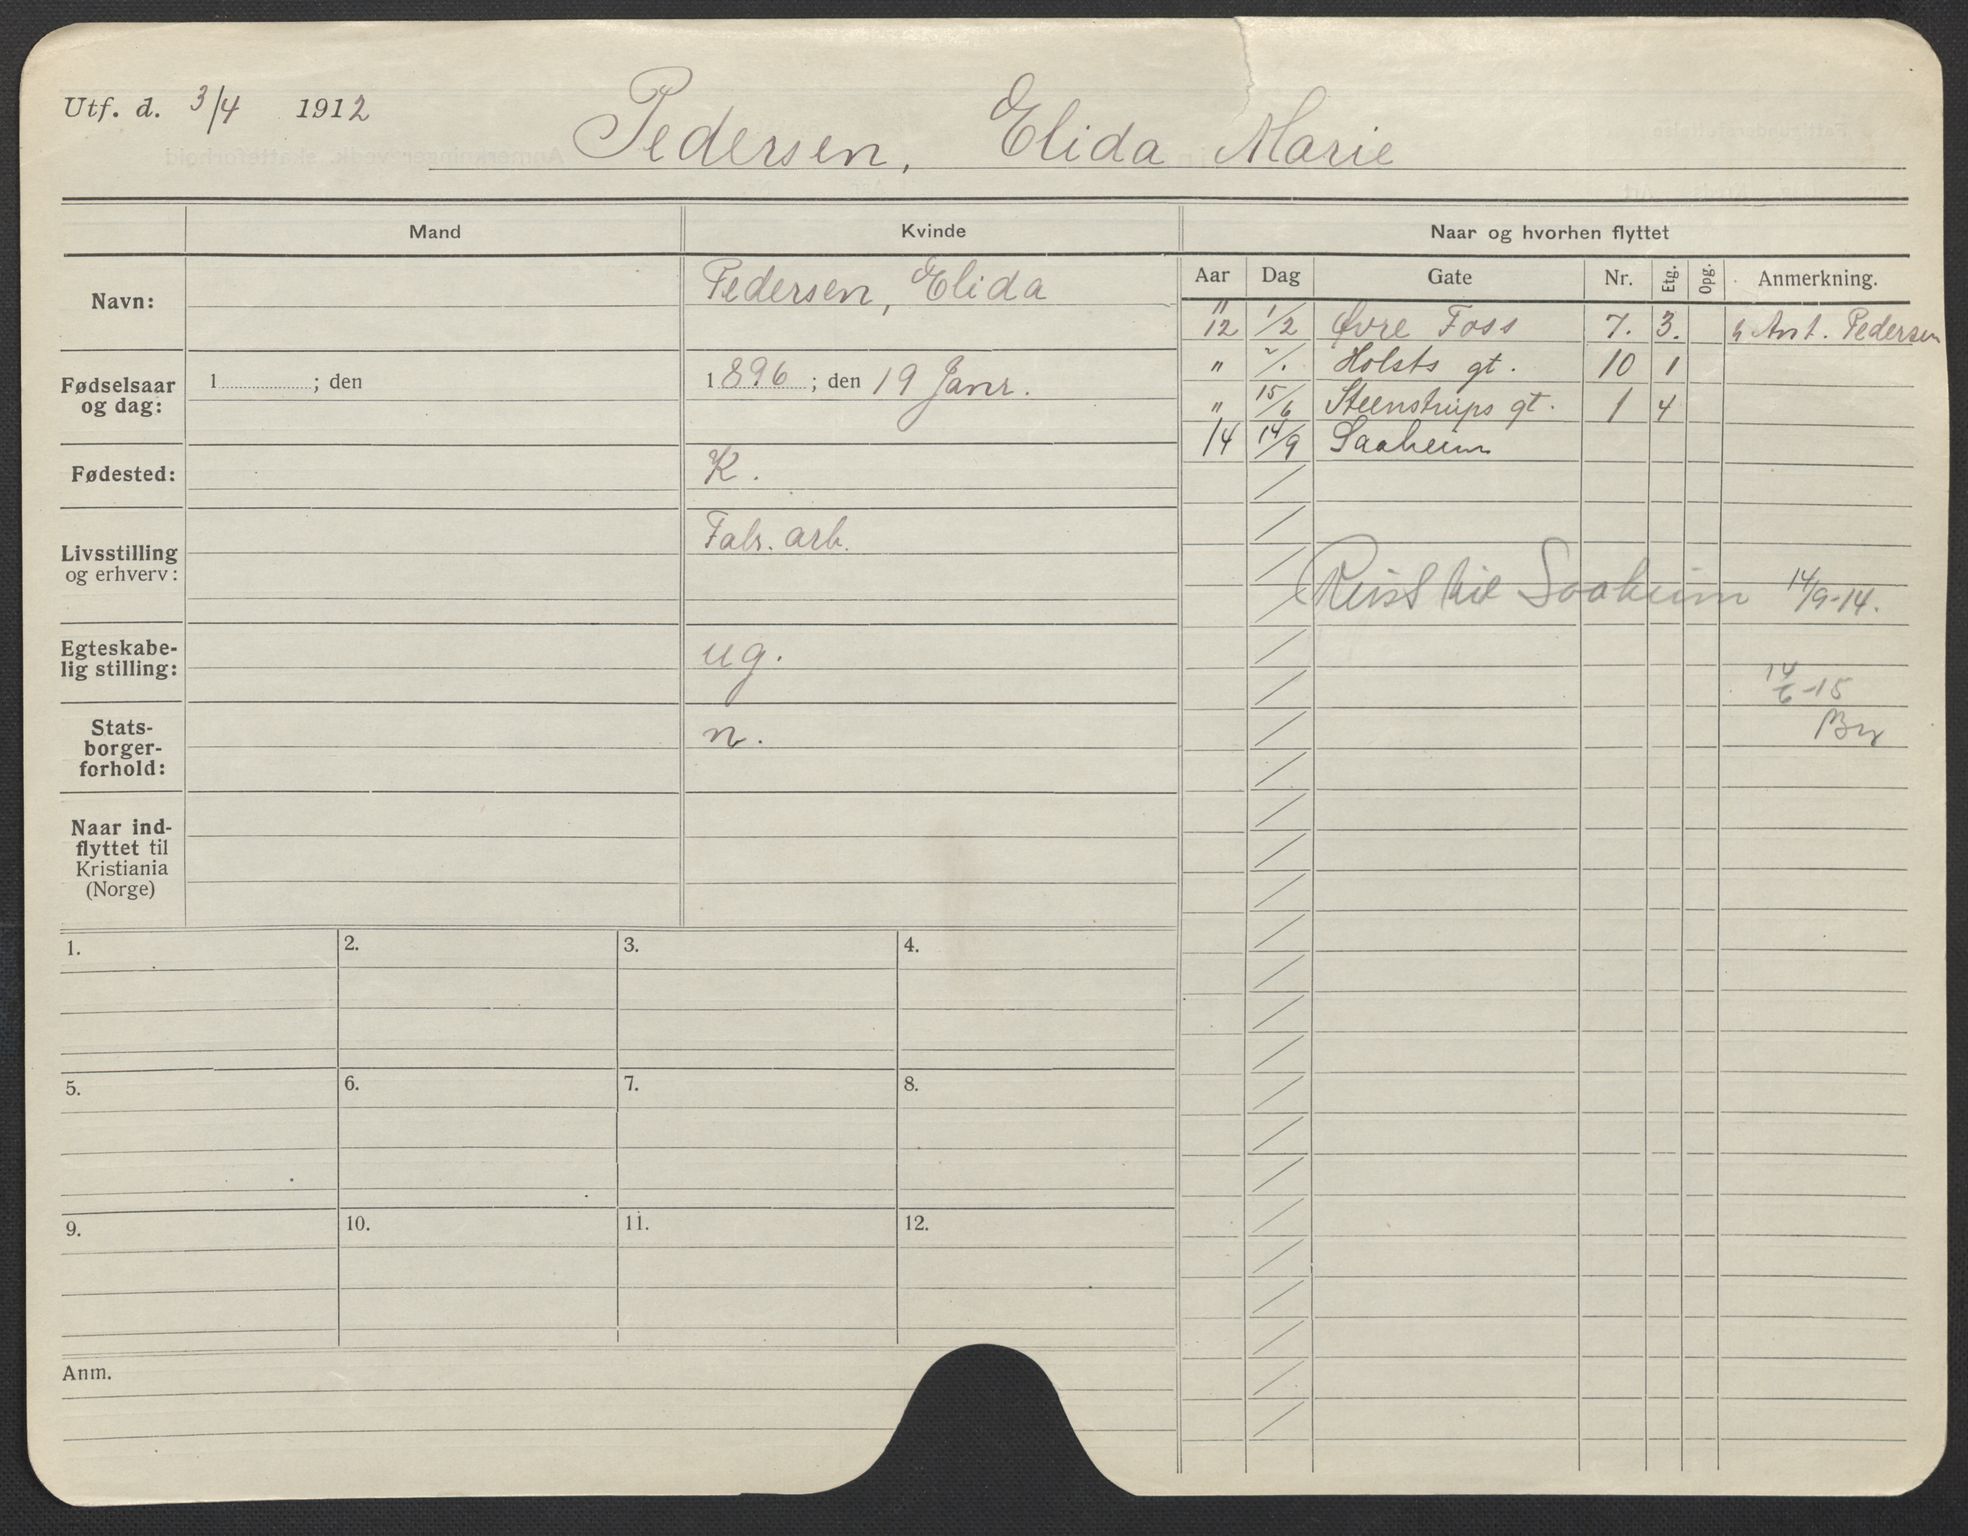 Utf. d. 3/4 1912
Pedersen, Elida Marie
Mand
Kvinde
Naar og hvorhen flyttet
Navn:
Pedersen, Elida
Fødselsaar og dag:
1 ; den
1896 ; den 19 Janr.
Fødested:
K.
Livsstilling og erhverv:
Fabr. arb.
Egteskabe-
lig stilling:
ug.
Stats-
borger-
forhold:
n.
Naar ind-
flyttet til
Kristiania
(Norge)
Aar Dag Gate Nr. Etg. Opg. Anmerkning.
" 12 1/2 Øvre Foss 7. 3. h Ant. Pedersen
" Holsts gt. 10 1
" 15/6 Steenstrups gt. 1 4
14 14/9 Saaheim
Reist til Saaheim 14/9-14.
14/6-15
1. 2. 3. 4.
5. 6. 7. 8.
9. 10. 11. 12.
Anm.